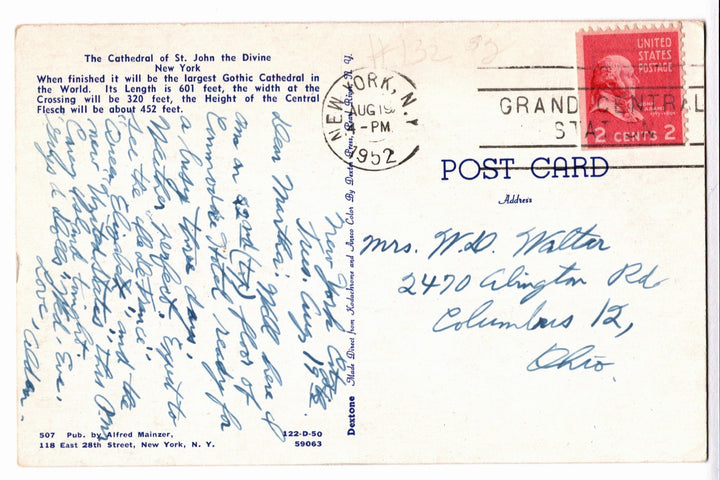 The Cathedral of St. John the Divine
New York
When finished it will be the largest Gothic Cathedral in
the World. Its Length is 601 feet, the width at the
Crossing will be 320 feet, the Height of the Central
Flesch will be about 452 feet.
New York City
Tues. Aug. 19th
Dear Martha: Well here I
am on 42nd floor of
Hotel, ready for
a busy three days.
Weather perfect. Expect to
see the
Queen Elizabeth, and the
new United States, this
Coney Island tonight.
Guys & Dolls, Wed. Eve.,
Love,
507 Pub. by Alfred Mainzer,
118 East 28th Street, New York, N. Y.
122-D-50
59063
Dextone Made Direct from Kodachrome and Ansco Color By Dexter Press, Pearl River, N. Y.
NEW YORK, N.Y.
AUG 19
-PM
1952
GRAND CENTRAL
UNITED
STATES
POSTAGE
JOHN
ADAMS
2 CENTS 2
POST CARD
Address
Mrs. W.D. Walter
2470 Arlington Rd
Columbus 12,
Ohio.